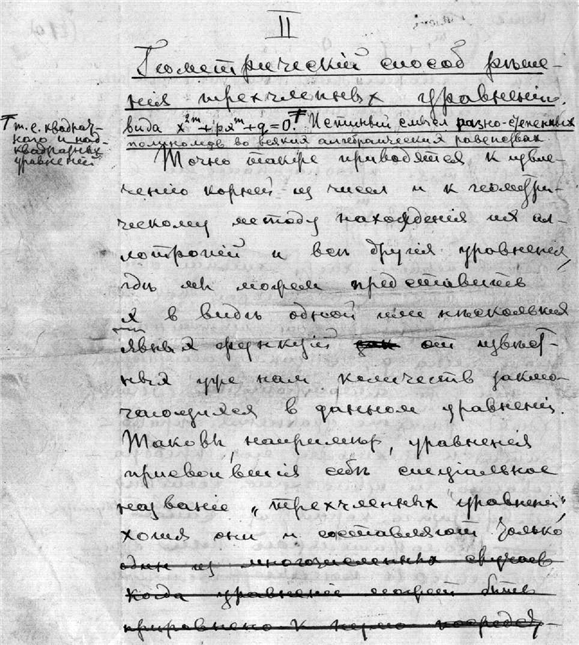 II
Геометрическій способъ рѣше-
нія трехчленныхъ уравненій
вида x²ᵐ+pxᵐ+q=0. Истинный смыслъ разно-степенныхъ
полиномовъ во всякихъ алгебраическихъ равенствахъ
т.е. квадрат-
наго и над-
квадратныхъ
уравненій
Точно также приводятся к извле-
ченію корней из чисел и к геометри-
ческому методу нахожденія их ал-
лотропій и всѣ другія уравненія,
гдѣ мы можем представить
x в видѣ одной или нѣскольких
явных функцій от извѣст-
ных уже нам количеств заклю-
чающихся в данном уравненіи.
Таковы, напримѣр, уравненія
присвоившія себѣ спеціальное
названіе „трехчленных уравненій"
хотя они и составляют только
один из многочисленных случаев
когда уравненіе может быть
приравнено к нулю посредст-